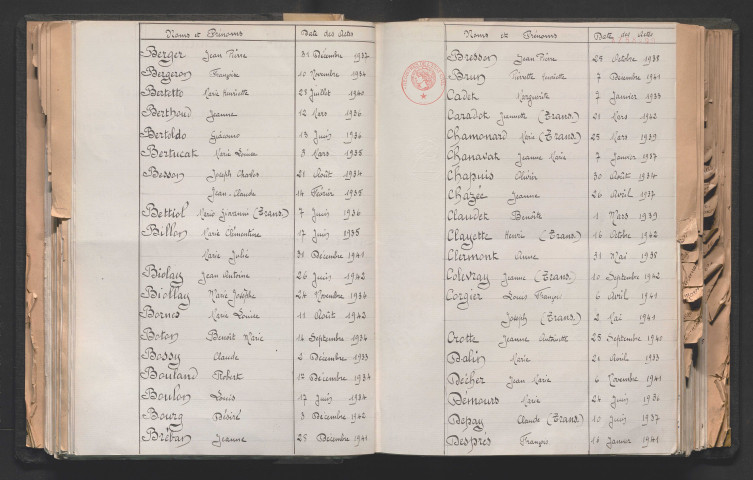 Noms et Prénoms Date des Actes
Berger Jean Pierre 31 Décembre 1937
Bergeron Françoise 10 Novembre 1934
Bertotto Marie Henriette 28 Juillet 1940
Berthoud Jeanne 12 Mars 1936
Bertoldo Giacomo 13 Juin 1936
Bertucat Marie Louise 3 Mars 1935
Besson Joseph Charles 21 Août 1934
Jean-Claude 14 Février 1935
Bettiol Marie Giovanni (Trans.) 7 Juin 1936
Billon Marie Clémentine 17 Juin 1935
Marie Julie 31 Décembre 1941
Biolay Jean Antoine 26 Juin 1942
Biollay Marie Josèphe 24 Novembre 1934
Bornes Marie Louise 11 Août 1943
Boton Benoît Marie 14 Septembre 1934
Bossy Claude 2 Décembre 1933
Bouland Robert 17 Décembre 1934
Boulon Louis 17 Juin 1934
Bourg Désiré 3 Décembre 1942
Bréban Jeanne 25 Décembre 1941
Noms et Prénoms Date des Actes
Bresson Jean Pierre 28 Octobre 1938
Brun Pierrette Henriette 7 Décembre 1941
Cadet Marguerite 7 Janvier 1933
Caradot Jeannette (Trans.) 21 Mars 1942
Chamonard Marie (Trans.) 25 Mars 1939
Chanavat Jeanne Marie 7 Janvier 1937
Chapuis Olivier 30 Août 1934
Chazée Jeanne 26 Avril 1937
Claudet Benoîte 11 Mars 1939
Clayette Henri (Trans.) 16 Octobre 1942
Clermont Anne 31 Mai 1935
Colevray Jeanne (Trans.) 10 Septembre 1942
Corgier Louis François 6 Avril 1941
Joseph (Trans.) 2 Mai 1941
Crotte Jeanne Antoinette 25 Septembre 1941
Dalin Marie 21 Avril 1933
Décher Jean Marie 6 Novembre 1941
Démours Marie 24 Juin 1936
Depay Claude (Trans.) 10 Juin 1937
Després François 16 Janvier 1941